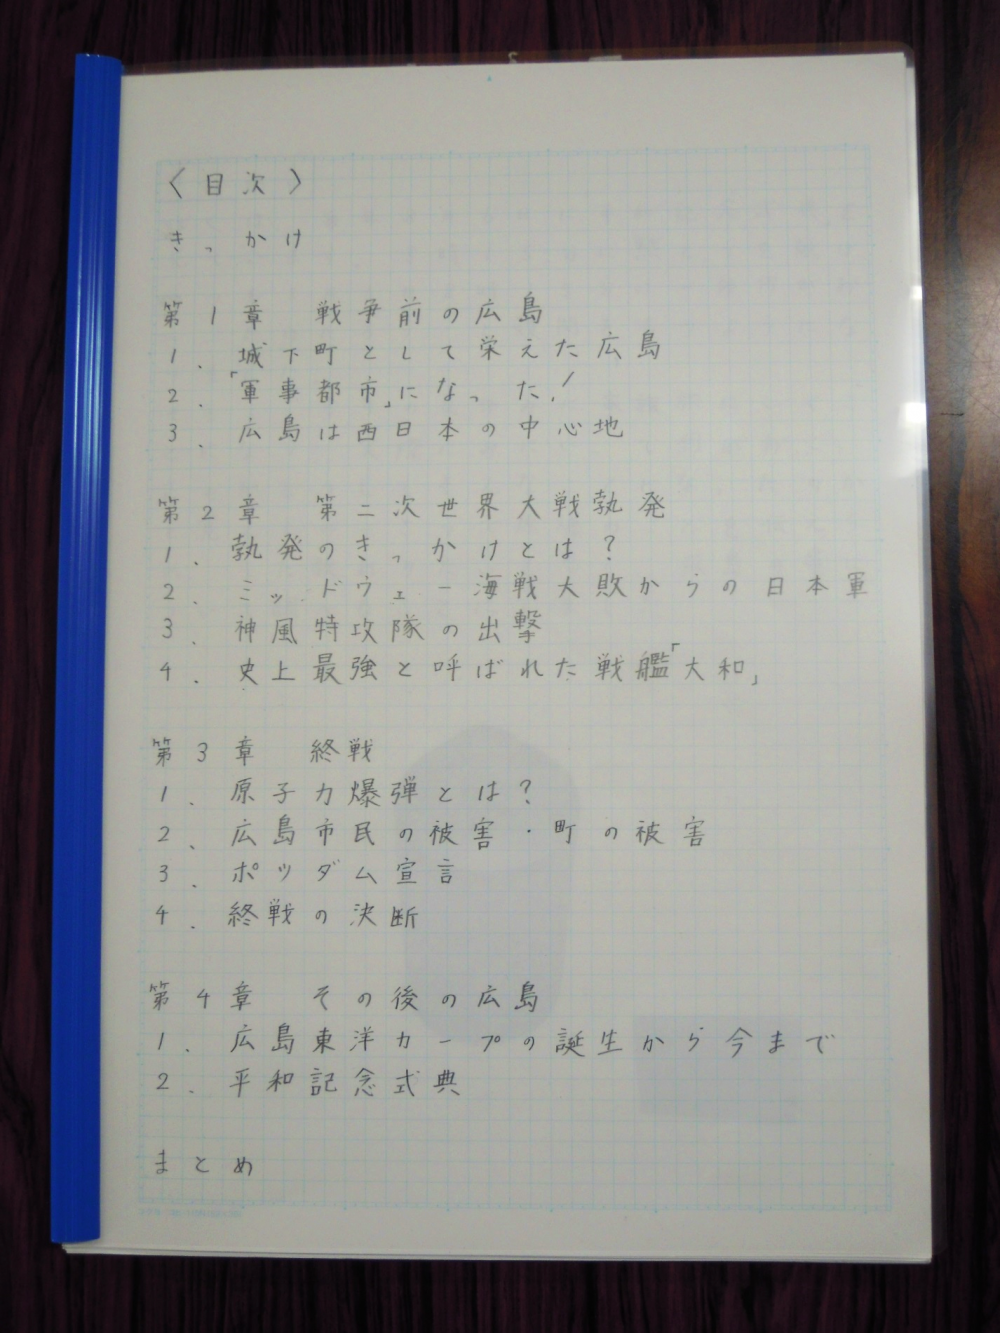 〈目次〉
きっかけ
第1章 戦争前の広島
1. 城下町として栄えた広島
2. 「軍事都市」になった!
3. 広島は西日本の中心地
第2章 第二次世界大戦勃発
1. 勃発のきっかけとは?
2. ミッドウェー海戦大敗からの日本軍
3. 神風特攻隊の出撃
4. 史上最強と呼ばれた戦艦「大和」
第3章 終戦
1. 原子力爆弾とは?
2. 広島市民の被害・町の被害
3. ポツダム宣言
4. 終戦の決断
第4章 その後の広島
1. 広島東洋カープの誕生から今まで
2. 平和記念式典
まとめ